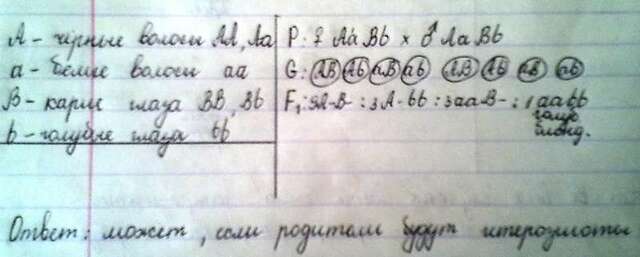 A - чёрные волосы AA, Aa
a - белые волосы aa
B - карие глаза BB, Bb
b - голубые глаза bb
P: ♀ Aa Bb × ♂ Aa Bb
G: AB Ab aB ab AB Ab aB ab
F₁: 9A-B- : 3A-bb : 3aaB- : 1aabb
голуб
блонд.
Ответ: может, если родители будут гетерозиготы